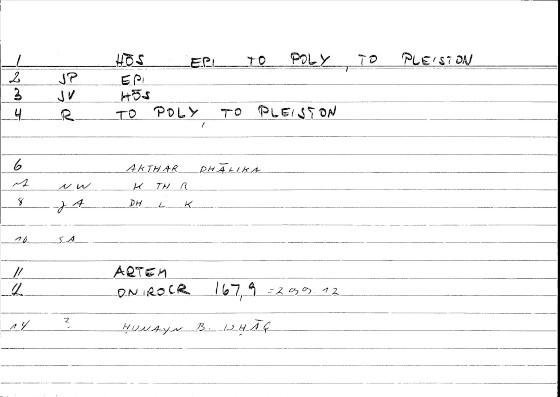 1 HŌS EPI TO POLY, TO PLEISTON
2 JP EPI
3 JV HŌS
4 R TO POLY, TO PLEISTON
6 AKTHAR DHĀLIKA
7 NW K TH R
8 JA DH L K
10 SA
11 ARTEM
12 ONIROCR 167,9 = 299 12
14 ? ḤUNAYN B. ISḤĀQ